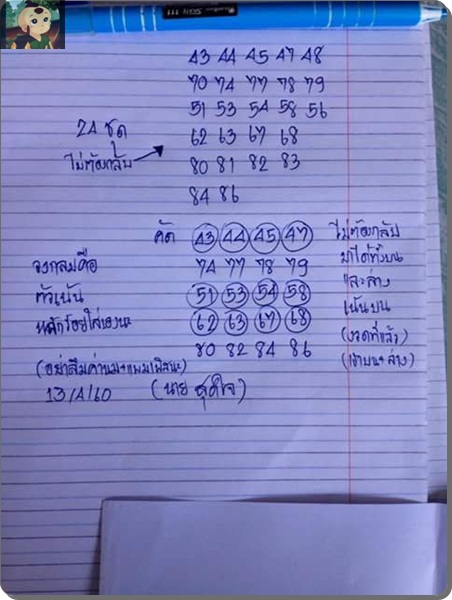 43 44 45 47 48
70 74 77 78 79
51 53 54 58 56
24 ชุด 62 63 67 68
ไม่ต้องกลับ 80 81 82 83
84 86
คัด 43 44 45 47 ไม่ต้องกลับ
วงกลมคือ 74 77 78 79 มาได้ทั้งบน
ตัวเน้น 51 53 54 58 และล่าง
หลักร้อยใส่เองนะ 62 63 67 68 เน้นบน
80 82 84 86 (งวดที่แล้ว)
(อย่าลืมค่านม+แพมเพิสนะ) (เข้าบน+ล่าง)
13/4/60 (นาย สุดใจ)